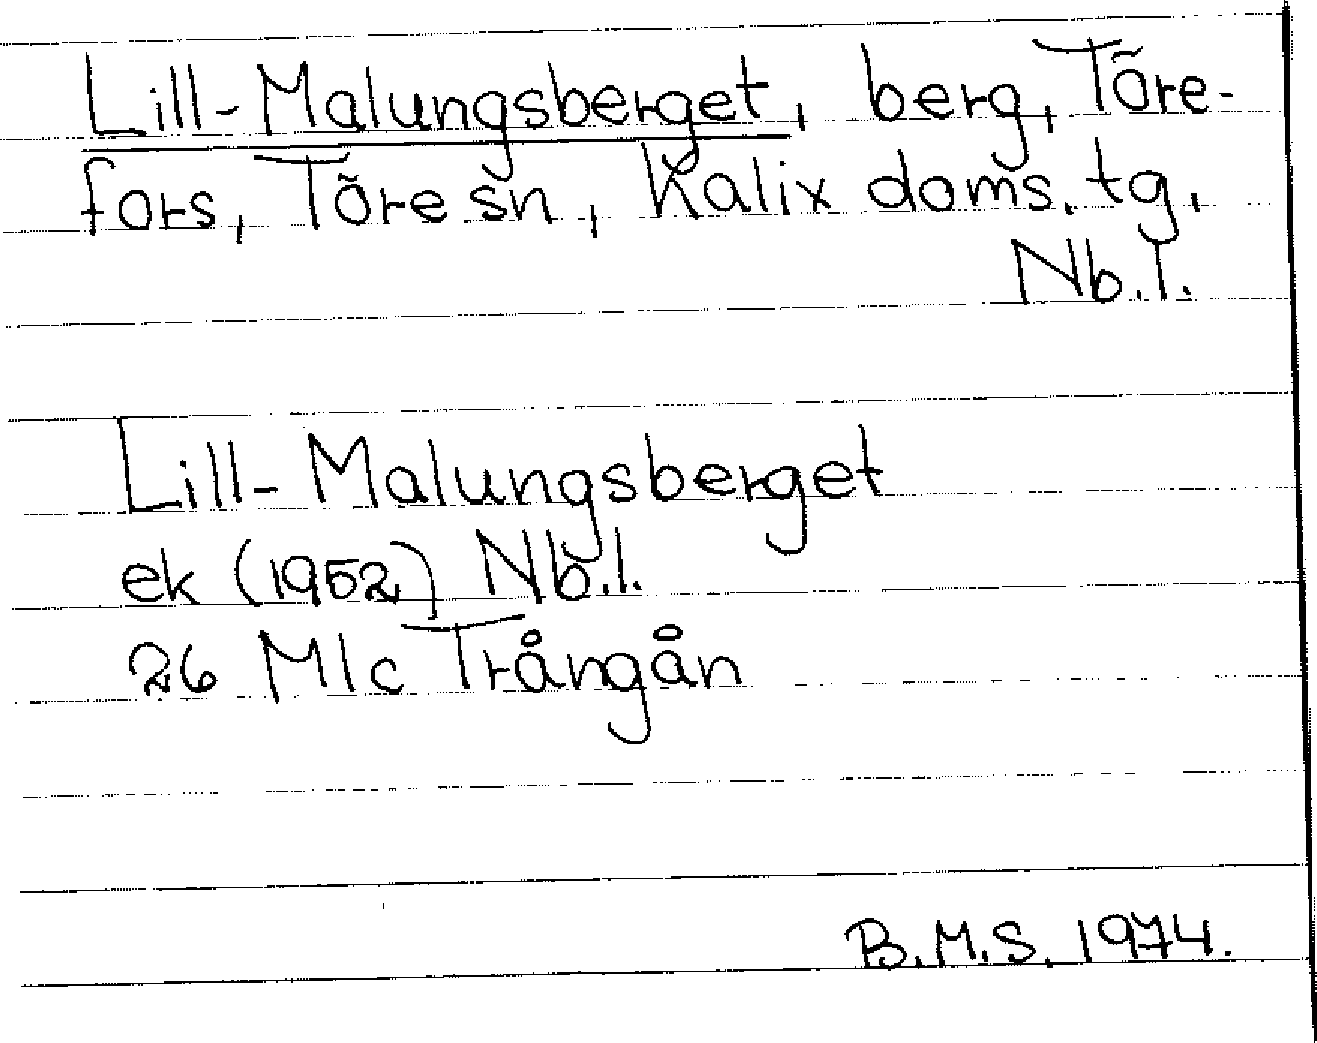 Lill-Malungsberget, berg, Töre-
fors, Töre sn, Kalix doms. tg,
Nb.l.
Lill-Malungsberget
ek (1952) Nb.l.
26 Mlc Trångån
B.M.S. 1974.